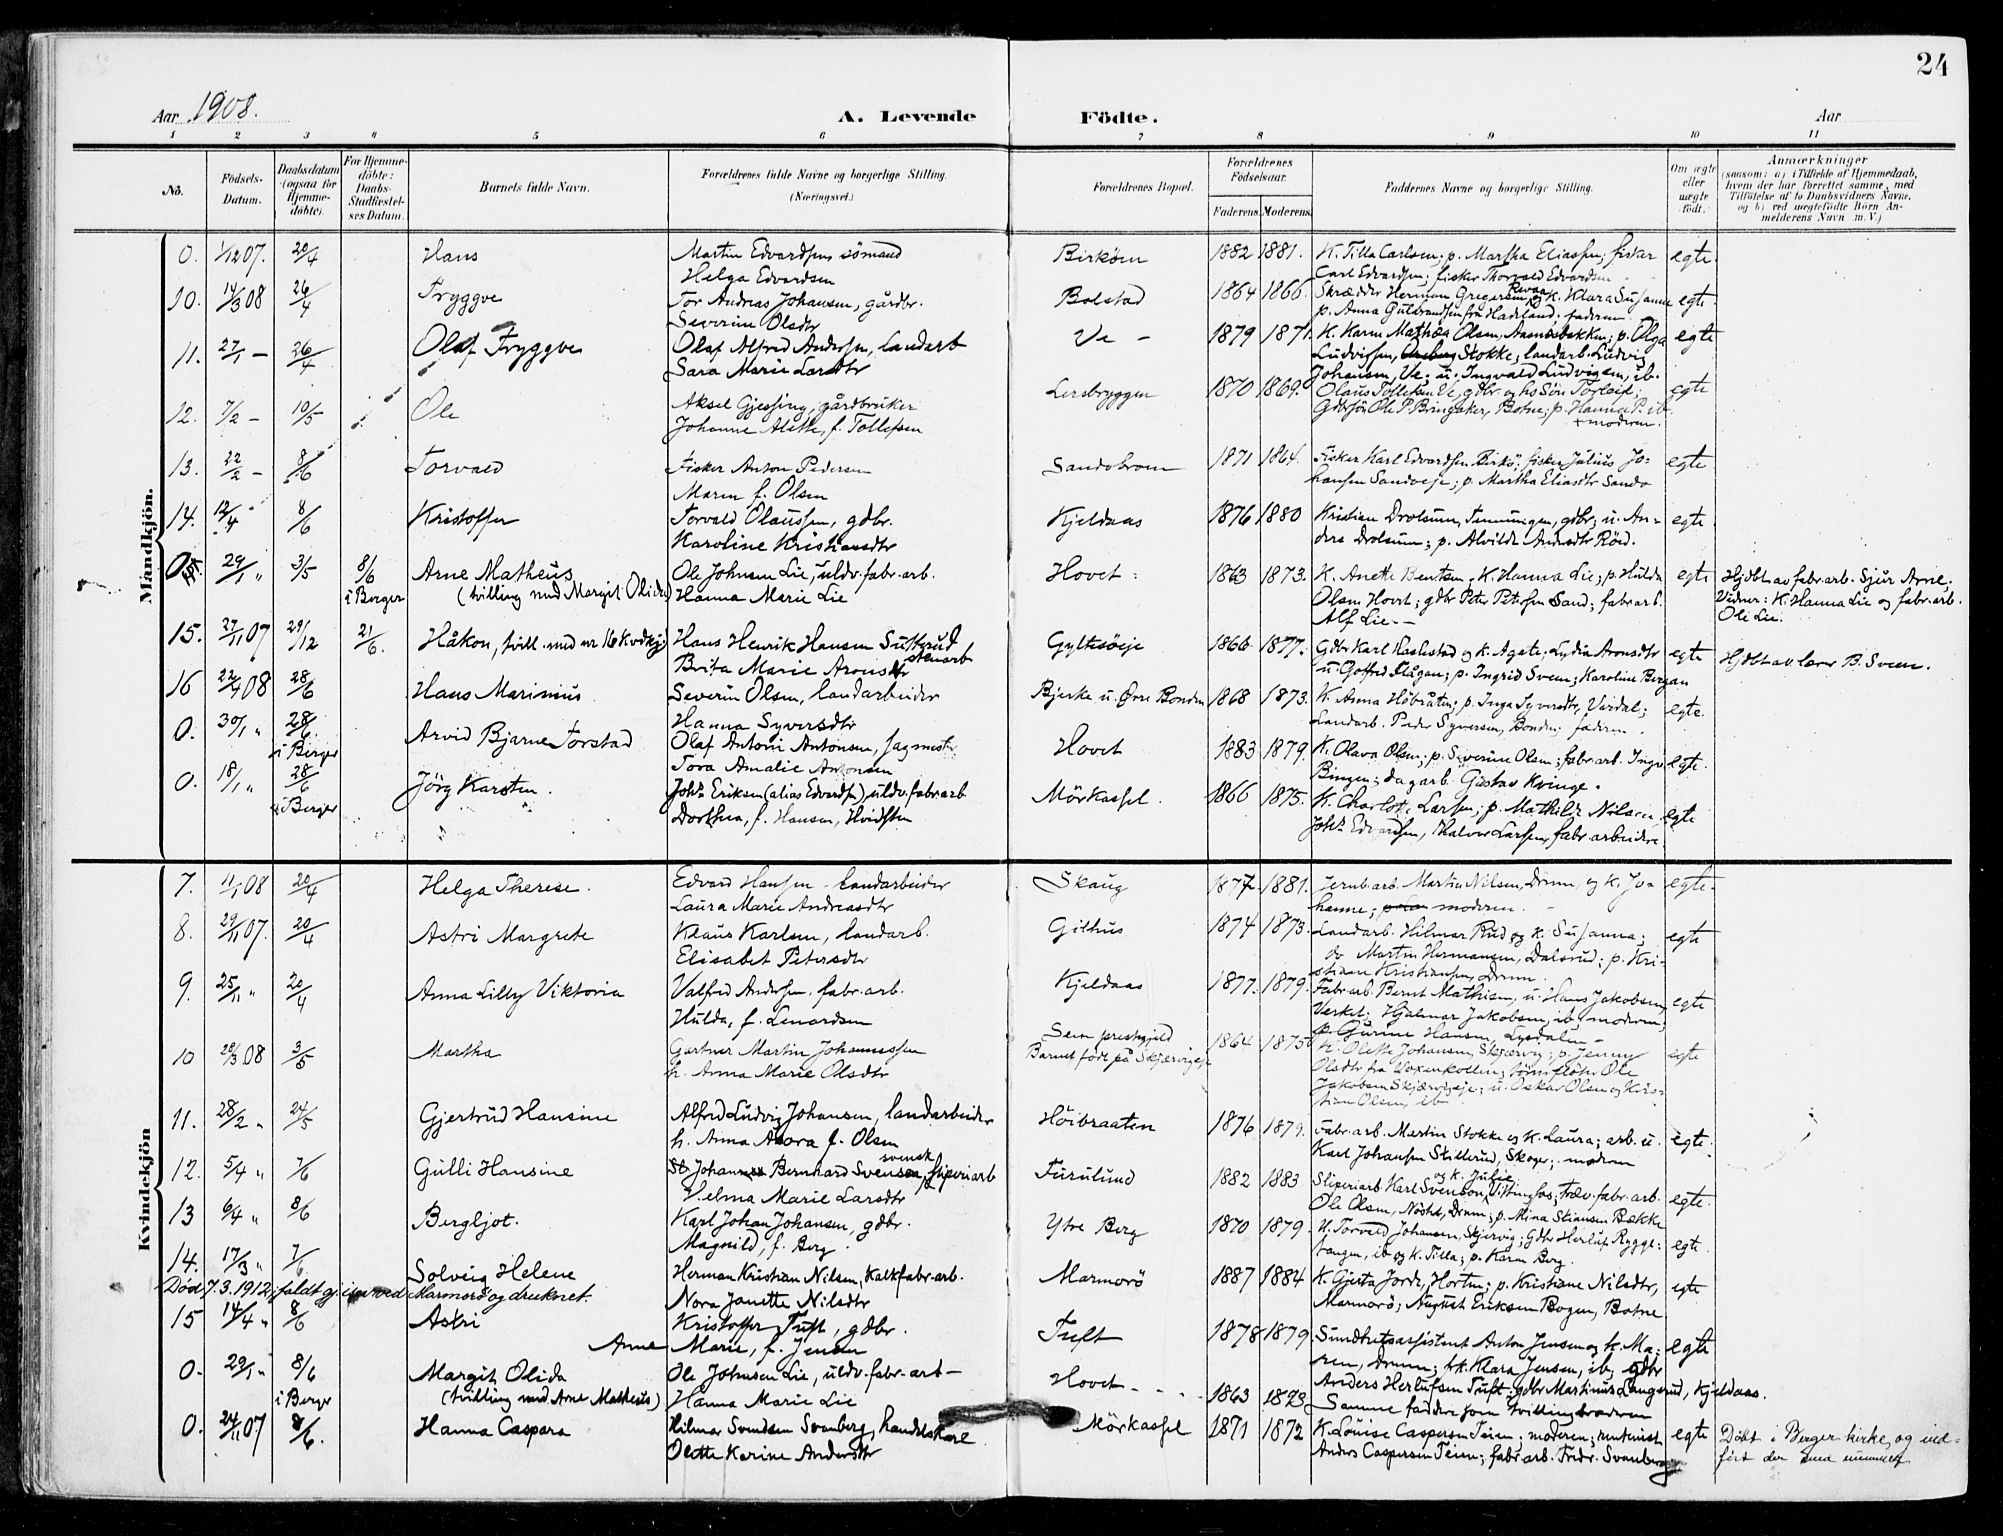 24
Aar 1908.
A. Levende Födte.
Aar
1 2 3 4 5 6 7 8 9 10 11
No.
Födsels-Datum.
Daabsdatum (ogsaa for Hjemme-döbte).
For Hjemme-döbte: Daabs-Stadfæstel-ses Datum.
Barnets fulde Navn.
Forældrenes fulde Navne og borgerlige Stilling. (Næringsvei.)
Forældrenes Bopæl.
Forældrenes Födselsaar.
Faderens. Moderens.
Faddernes Navne og borgerlige Stilling.
Om ægte eller uægte födt.
Anmærkninger
(saasom: a) i Tilfælde af Hjemmedaab,
hvem der har forrettet samme, med
Tilföielse af to Daabsvidners Navne,
og b) ved uægtefödte Börn An-
melderens Navn m. V.)
Mandkjön.
0. 1/12 07. 20/4 Hans Martin Edvardsen, sömand Birköen 1882 1881. K. Tilla Carlsen; p. Martha Eliassen; fisker egte.
Helga Edvardsen Carl Edvardsen; fisker Thorvald Edvardsen
10. 14/3 08 26/4 Tryggve Tor Andreas Johansen, gårdbr. Bolstad 1864 1866. Skrædder Herman Gregersen og K. Klara Susanne egte
Severine Olsdtr p. Anna Gulbrandsen fra Hadeland; faderen
11. 27/1 — 26/4 Olaf Tryggve Olaf Alfred Andersen, landarb Ve — 1879 1871. K. Karen Mathea Olsen, p. Olga egte
Sara Marie Larsdtr Ludvigsen, Stokke; landarb. Ludvig
Johansen, Ve; u. Ingvald Ludvigsen, ib.
12. 7/2 — 10/5 Ole Aksel Gjessing, gårdbruker Lersbryggen 1870 1869. Olaus Tollefsen Ve, gdbr og hs Sön Torleif; egte
Johanne Alette, f. Tollefsen Gdbrsön Ole P. Bringaker, Botne; p. Hanna P. ib.
+ moderen.
13. 22/2 — 8/6 Torvald Fisker Anton Pedersen Sandebroen 1871 1864. Fisker Karl Edvardsen Birkö; fisker Julius Jo- egte
Maren f. Olsen hansen Sandveje; p. Martha Eliasdtr Sando
14. 12/4 8/6 Kristoffer Torvald Olaussen, gdbr. Kjeldaas 1876 1880 Kristian Drolsum, gdbr; u. An- egte.
Karoline Kristiansdtr ders Drolsum; p. Alvilde Andrsdtr Röed.
0. 29/1 " 3/5 8/6 Arne Matheus Ole Johnsen Lie, uldv. fabr. arb. Hovet: 1863 1873. K. Anette Bentsen; K. Hanna Lie; p. Hulda egte Hjdöbt av fabr. arb. Sjur Arne.
i Berger (tvilling med Margit Olida) Hanna Marie Lie Olsen Hovet; gdbr Peter Petersen Sand; fabr. arb. Vidner: K. Hanna Lie og fabr. arb.
Alf Lie. — Ole Lie.
15. 27/11 07 29/12 21/6. Håkon, tvill. med nr 16 kvdkj) Hans Henrik Hansen Sutterud Gyltesöeje 1866 1877. Gdbr Karl Haslestad og k. Agate; Lydia Aronsdtr egte Hjdöbt av lærer B. Sveen.
stenarb
Brita Marie Aronsdtr u. Gotfred Flågan; p. Ingrid Sveen; Karoline Bergan
16 22/4 08 28/6 Hans Marinius Severin Olsen, landarbeider Bjerke u. Övre Bonden 1868 1873. K. Anna Höbråten; p. Inga Syversdtr, Vardal; egte.
Hanna Syversdtr Landarb. Peder Syversen, Bonden; faderen.
0. 30/1 " 28/6. Arvid Bjarne Torstad Olaf Antoni Antonsen, sagmestr Hovet 1883 1879. K. Olava Olsen; p. Severine Olsen; fabr. arb. Ingv. egte.
i Berger Tora Amalie Antonsen Bingen; dagarb. Gustav Kvinge.
0. 18/1 " 28/6 Jörg Karsten. Johs Eriksen (alias Edvardsen), uldv. fabr. arb Mörkassel. 1866 1875. K. Charlotte Larsen; p. Mathilde Nilsen, egte
i Berger Dorthea, f. Hansen, Hvidsten Johs Edvardsen, Halvor Larsen, fabr. arbeidere
Kvindekjön
7. 11/1 08 20/4 Helga Therese. Edvard Hansen - landarbeider Skaug 1877 1881. Jernb. arb. Martin Nilsen, Drmn, og k. Jo- egte.
Laura Marie Andreasdtr hanne; moderen.
8. 29/11 07. 20/4 Astri Margrete Klaus Karlsen, landarb. Gilhus 1874 1873. Landarb. Hilmar Rud og k. Susanna; egte
Elisabet Petersdtr do Martin Hermansen, Dalsrud; p. Kri-
stiane Kristiansen, Drmn.
9. 25/11 " 20/4 Anna Lilly Viktoria Valfred Andersen. fabr. arb. Kjeldaas 1877. 1879. Fabr. arb. Bernt Mathisen, u. Hans Jakobsen, egte
Hulda, f. Lenardsen Verket; Hjalmar Jakobsen, ib; moderen;
p. Gurine Hansen, Lysdalen —
10 28/3 08 3/5 Martha Gartner Martin Johannessen Sem prestegjeld 1864 1875 K. Olette Johansen, Skjærvig; p. Jenny egte
h. Anna Marie Olsdtr Barnet födt på Skjærvigeje Olsdtr fra Voxenkollen; tömrflöter Ole
Jakobsen Skjærvigeje; u. Oskar Olsen og Kris-
tian Olsen, ib
11. 28/2 " 24/5 Gjertrud Hansine Alfred Ludvig Johansen, landarbeider Höibraaten 1876 1879. Fabr. arb. Martin Stokke og k. Laura; arb. u. egte.
h. Anna Aaora f. Olsen Karl Johansen Stillerud, Skoger; moderen
12. 5/4 " 7/6 Gulli Hansine Johannes Bernhard Svensen, sliperiarb Furulund 1882 1883 Sliperiarb. Karl Svenson, Vittingfos; træv. fabr. arb. egte.
svensk og k. Julie
Helma Marie Larsdtr Ole Olsen, Nöste, Drmn; p. Mina Stiansen Bække
13 6/4 " 8/6 Bergljot. Karl Johan Johansen, gdbr. Ytre Berg 1870 1879. K. Torvald Johansen, Skjervig; Gdbr Herluf Rygge- egte.
Magnild, f. Berg. tangen, ib og k. Tilla; p. Karen Berg.
14. 17/3 " 7/6 Solveig Helene Herman Kristian Nilsen, Kalkfabr. arb. Marmorö 1887 1884 K. Gjerta Jorde, Horten; p. Kristiane Nilsdtr, egte
Död 7.3.1912, faldt gj. isen ved Marmorö og druknet. Nora Janette Nilsdtr Marmorö; August Eriksen Bogen, Botne
15 14/4 " 8/6 Astri Kristoffer Tuft, gdbr. Tuft 1878 1879 Sundhetsassistent Anton Jensen og k. Ma- egte
Anne Marie, f. Jensen ren, Drmn; frk. Klara Jensen, ib; gdbr
Anders Herlufsen Tuft; gdbr Martinus Langerud, Kjeldaas.
0. 29/1 " 8/6 Margit Olida Ole Johnsen Lie, uldv. fabr. arb — Hovet — 1863 1873 Samme faddere som tvillingbroderen
i Berger (tvilling med Arne Matheus) Hanna Marie Lie
0. 24/11 07 8/6. Hanna Caspara Hilmar Svendsen Svanberg, handelskarl Mörkassel 1871 1872 K. Louise Caspersen Teien; moderen; rentenist egte Döbt i Berger kirke og ind-
Olette Karine Andersdtr Anders Caspersen Teien; fabr. arb. Fridr. Svanberg fört der med nummer